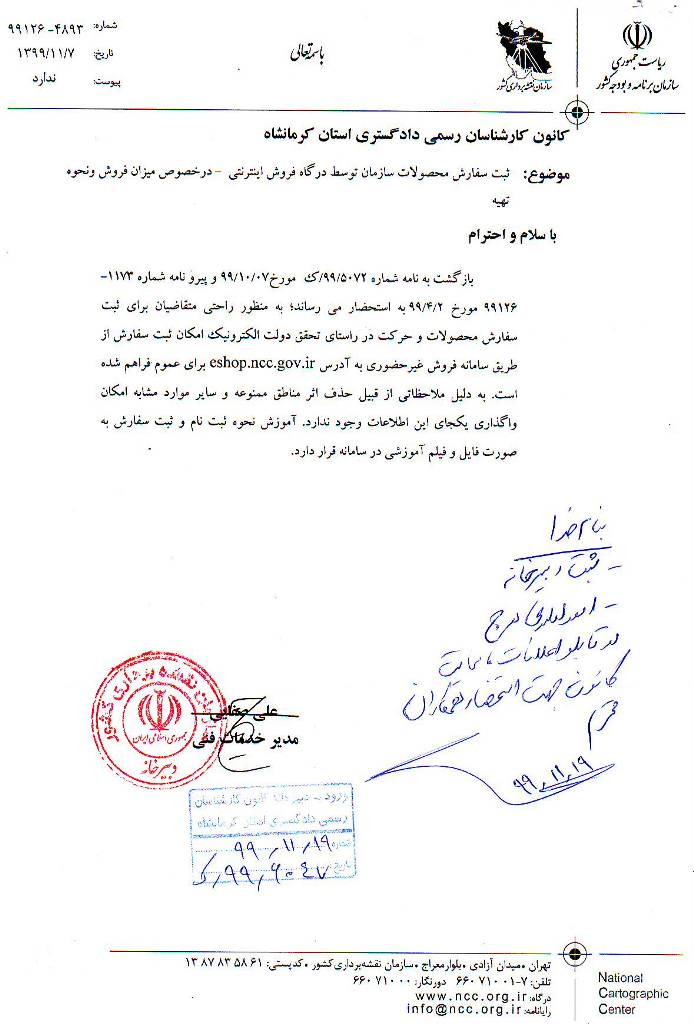 ریاست جمهوری
سازمان برنامه و بودجه کشور
سازمان نقشه‌برداری کشور
باسمه تعالی
شماره: ۴۸۹۳-۹۹۱۲۶
تاریخ: ۱۳۹۹/۱۱/۷
پیوست: ندارد
کانون کارشناسان رسمی دادگستری استان کرمانشاه
موضوع: ثبت سفارش محصولات سازمان توسط درگاه فروش اینترنتی - درخصوص میزان فروش ونحوه
تهیه
با سلام و احترام
بازگشت به نامه شماره ۹۹/۵۰۷۲/ک مورخ ۹۹/۱۰/۰۷ و پیرو نامه شماره ۱۱۷۳-
۹۹۱۲۶ مورخ ۹۹/۴/۲ به استحضار می رساند؛ به منظور راحتی متقاضیان برای ثبت
سفارش محصولات و حرکت در راستای تحقق دولت الکترونیک امکان ثبت سفارش از
طریق سامانه فروش غیرحضوری به آدرس eshop.ncc.gov.ir برای عموم فراهم شده
است. به دلیل ملاحظاتی از قبیل حذف اثر مناطق ممنوعه و سایر موارد مشابه امکان
واگذاری یکجای این اطلاعات وجود ندارد. آموزش نحوه ثبت نام و ثبت سفارش به
صورت فایل و فیلم آموزشی در سامانه قرار دارد.
بنام خدا
- ثبت دبیرخانه
کانون جهت استحضار همکاران
۹۹/۱۱/۱۹
علی صفایی
مدیر خدمات فنی
سازمان نقشه برداری کشور
جمهوری اسلامی ایران
دبیرخانه
ورود به دبیرخانه کانون کارشناسان
رسمی دادگستری استان کرمانشاه
شماره ۹۹/۱۱/۱۹
تاریخ ۹۹/۶۰۴۷/ک
تهران •میدان آزادی •بلوار معراج •سازمان نقشه‌برداری کشور •کدپستی: ۱۳۸۷۸۳۵۸۶۱
تلفن: ۷-۶۶۰۷۱۰۰۱ دورنگار: ۶۶۰۷۱۰۰۰
درگاه: www.ncc.org.ir
رایانامه: info@ncc.org.ir
National
Cartographic
Center